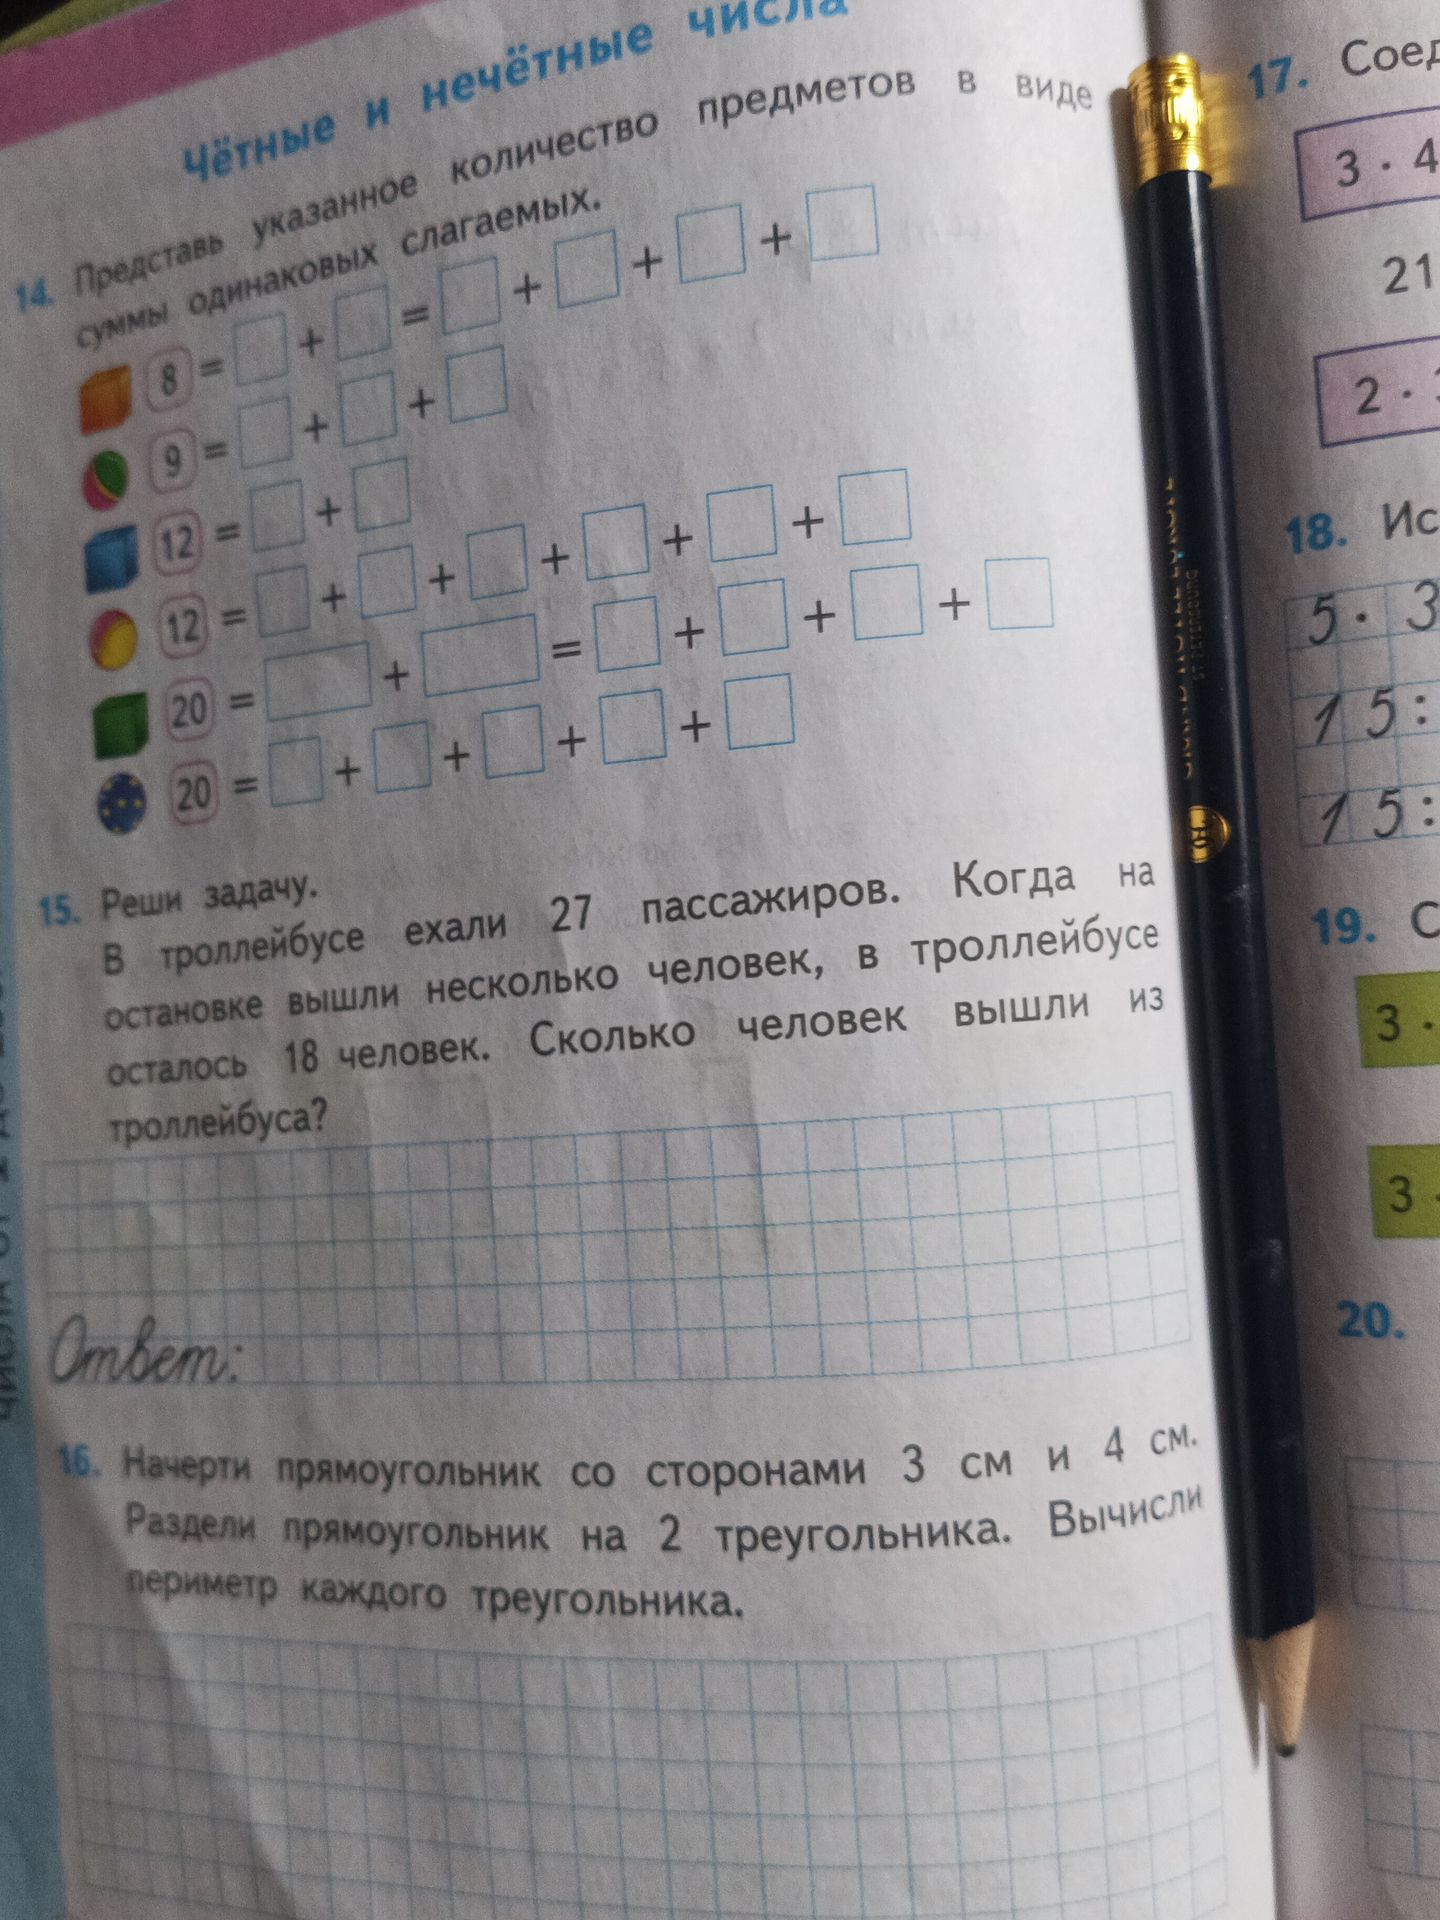 Чётные и нечётные числа
14. Представь указанное количество предметов в виде
суммы одинаковых слагаемых.
8 = + = + + +
9 = + +
12 = +
12 = + + + + +
20 = + = + + +
20 = + + + +
15. Реши задачу.
В троллейбусе ехали 27 пассажиров. Когда на
остановке вышли несколько человек, в троллейбусе
осталось 18 человек. Сколько человек вышли из
троллейбуса?
Ответ:
16. Начерти прямоугольник со сторонами 3 см и 4 см.
Раздели прямоугольник на 2 треугольника. Вычисли
периметр каждого треугольника.
ST PETERSBURG
17. Соед
3 · 4
21
2 ·
18. Ис
5 · 3
15 :
15 :
19. С
3 ·
3 ·
20.